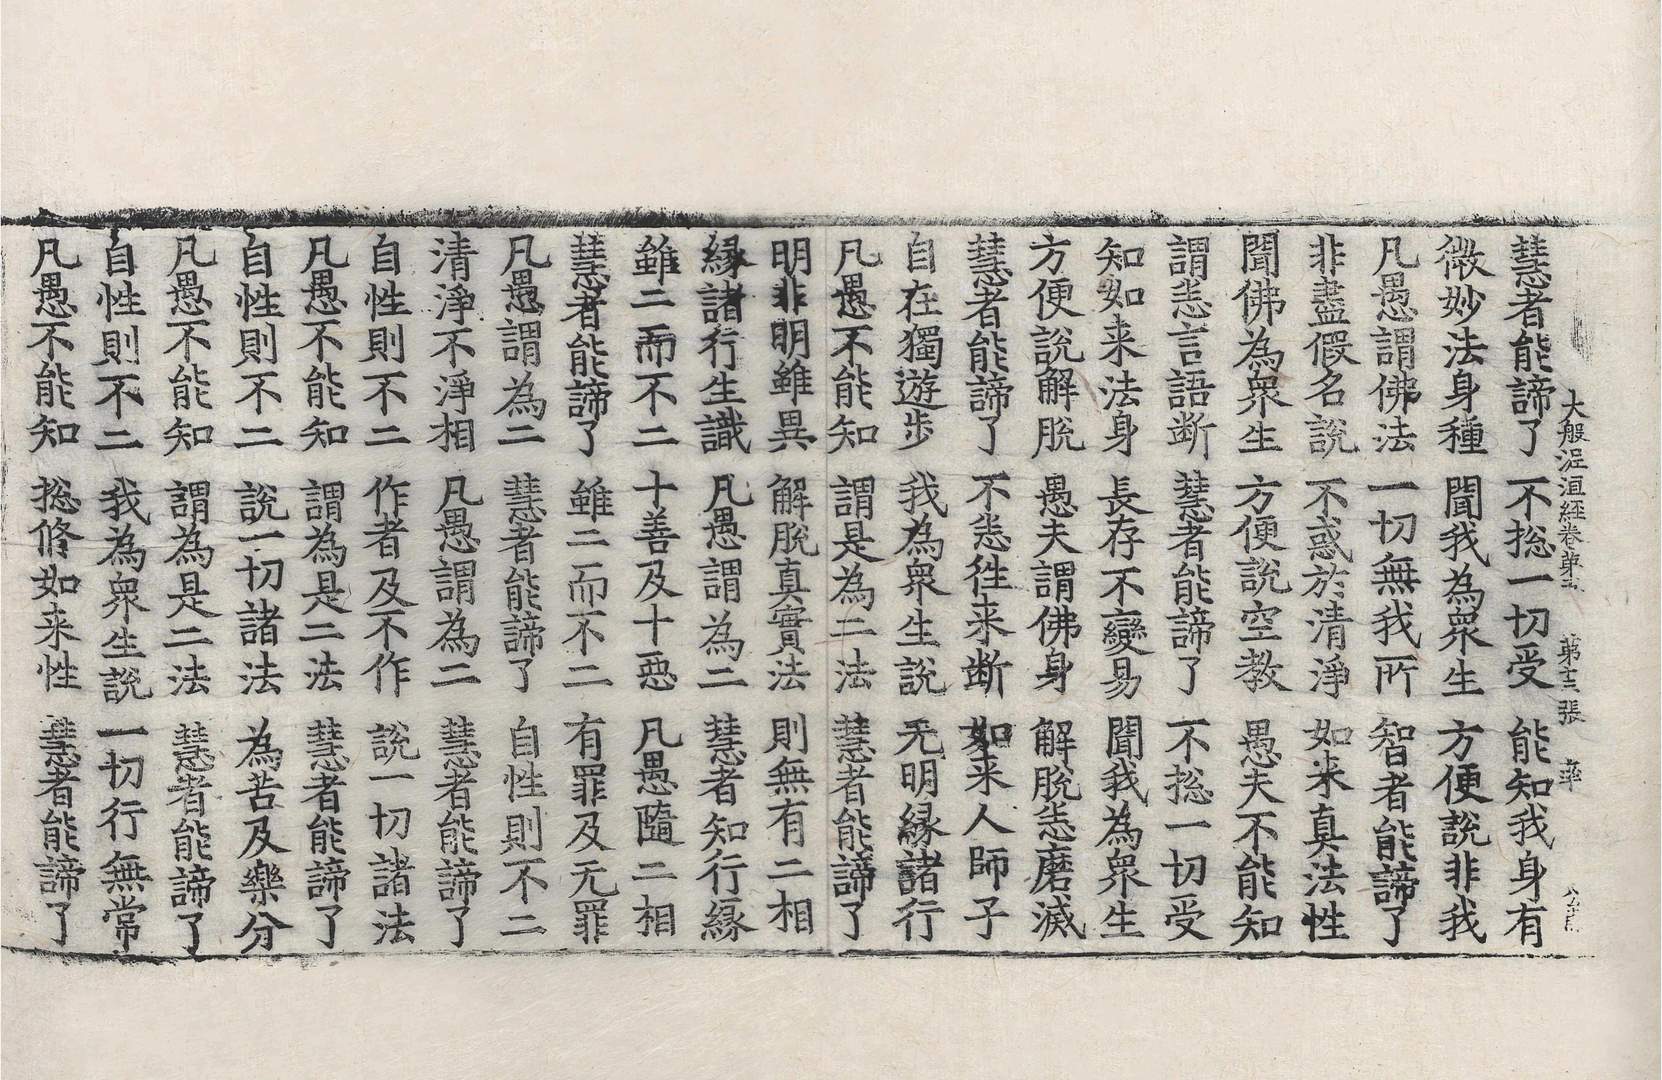 大般泥洹經卷第五 第十三張 率
慧者能諦了 不捴一切受 能知我身有
微妙法身種 聞我為衆生 方便說非我
凡愚謂佛法 一切無我所 智者能諦了
非盡假名說 不惑於清淨 如来真法性
聞佛為衆生 方便說空教 愚夫不能知
謂悉言語断 慧者能諦了 不捴一切受
知如来法身 長存不變易 聞我為衆生
方便說解脫 愚夫謂佛身 解脫悉磨滅
慧者能諦了 不悉往来断 如来人師子
自在獨遊步 我為衆生說 无明縁諸行
凡愚不能知 謂是為二法 慧者能諦了
明非明雖異 解脫真實法 則無有二相
縁諸行生識 凡愚謂為二 慧者知行縁
雖二而不二 十善及十惡 凡愚隨二相
慧者能諦了 雖二而不二 有罪及无罪
凡愚謂為二 慧者能諦了 自性則不二
清淨不淨相 凡愚謂為二 慧者能諦了
自性則不二 作者及不作 說一切諸法
凡愚不能知 謂為是二法 慧者能諦了
自性則不二 說一切諸法 為苦及樂分
凡愚不能知 謂為是二法 慧者能諦了
自性則不二 我為衆生說 一切行無常
凡愚不能知 捴脩如来性 慧者能諦了